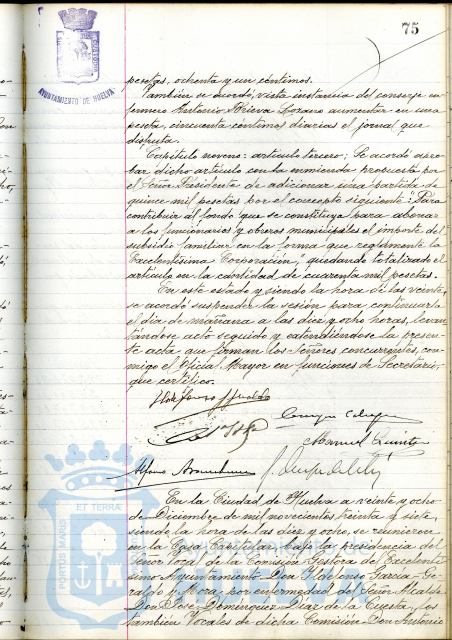 75
AYUNTAMIENTO DE HUELVA
pesetas, ochenta y un céntimos.
También se acordó, vista instancia del conserje en-
fermero Antonio Lozano aumentar en una
peseta, cincuenta céntimos diarias el jornal que
disfruta.
Capítulo noveno: artículo tercero; Se acordó apro-
bar dicho artículo con la enmienda propuesta por
el Señor Presidente de adicionar una partida de
quince mil pesetas por el concepto siguiente "Para
contribuir al fondo que se constituya para abonar
a los funcionarios y obreros municipales el importe del
subsidio familiar en la forma que reglamente la
Excelentísima Corporación", quedando totalizado el
artículo en la cantidad de cuarenta mil pesetas.
En este estado y siendo la hora de las veinte,
se acordó suspender la sesión para continuarla
el día de mañana a las diez y ocho horas, levan-
tándose acto seguido y extendiéndose la presen-
te acta que firman los Señores concurrentes, con-
migo el Oficial Mayor en funciones de Secretario,
que certifico.
Manuel Quintero
Alfonso
En la Ciudad de Huelva a veinte y ocho
de Diciembre de mil novecientos treinta y siete,
siendo la hora de las diez y ocho, se reunieron
en la Casa Capitular bajo la presidencia del
Señor Vocal de la Comisión Gestora del Excelentí-
simo Ayuntamiento Don Ildefonso García-Ge-
raldo y Mora, por enfermedad del Señor Alcalde
Don José Domínguez Díaz de la Cuesta, los
también Vocales de dicha Comisión Don Antonio
PORTUS MARIS ET TERRA